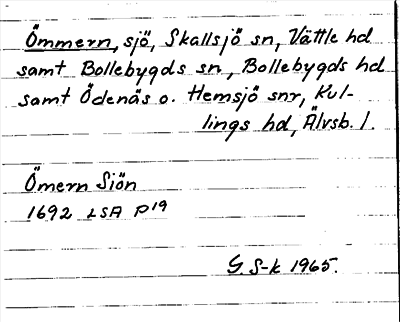 Ömmern, sjö, Skallsjö sn, Vättle hd
samt Bollebygds sn, Bollebygds hd
samt Ödenäs o. Hemsjö snr, Kul-
lings hd, Älvsb. l.
Ömern Siön
1692 LSA P19
G. S-k 1965.